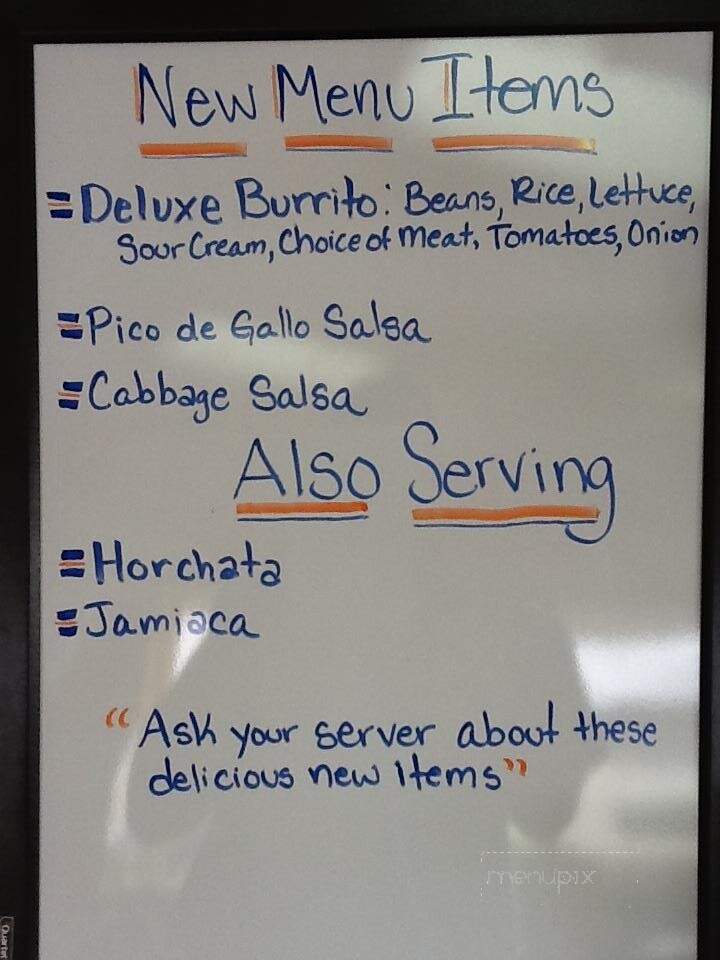 New Menu Items
Deluxe Burrito: Beans, Rice, Lettuce,
Sour Cream, Choice of Meat, Tomatoes, Onion
Pico de Gallo Salsa
Cabbage Salsa
Also Serving
Horchata
Jamiaca
“Ask your server about these
delicious new Items”
menupix
Quartet